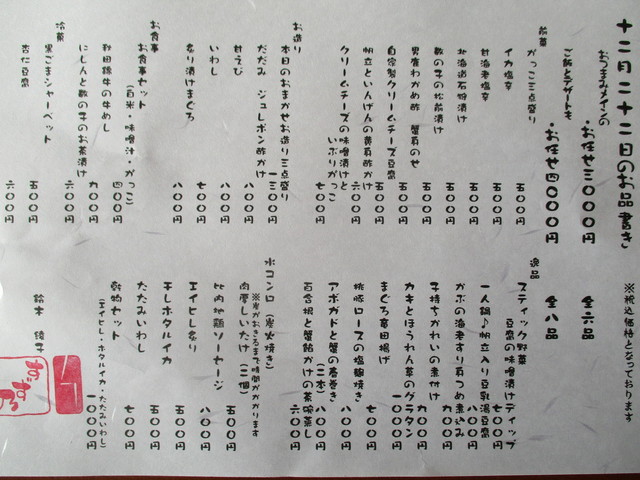 十二月二十二日のお品書き
※税込価格となっております
おつまみメインの
・お任せ三〇〇〇円 全六品
ご飯とデザートも
・お任せ四〇〇〇円 全八品
前菜
がっこ三点盛り 五〇〇円
イカ塩辛 五〇〇円
甘海老塩辛 五〇〇円
北海道石狩漬け 五〇〇円
数の子の松前漬け 五〇〇円
男鹿わかめ酢 蟹身のせ 五〇〇円
自家製クリームチーズ豆腐 五〇〇円
帆立といんげんの黄身酢かけ 六〇〇円
クリームチーズの味噌漬けと
いぶりがっこ 七〇〇円
お造り
本日のおまかせお造り三点盛り 一三〇〇円
だだみ ジュレポン酢かけ 八〇〇円
甘えび 八〇〇円
いわし 七〇〇円
炙り漬けまぐろ 八〇〇円
お食事
お食事セット
(白米・味噌汁・がっこ) 四〇〇円
秋田錦牛の牛めし 九〇〇円
にしんと数の子のお茶漬け 六〇〇円
冷菓
黒ごまシャーベット 五〇〇円
杏仁豆腐 六〇〇円
逸品
スティック野菜
豆腐の味噌漬けディップ 七〇〇円
一人鍋♪帆立入り豆乳湯豆腐 八〇〇円
カブの海老すり身つめ煮込み 九〇〇円
子持ちかれいの煮付け 九〇〇円
カキとほうれん草のグラタン 一〇〇〇円
まぐろ竜田揚げ 七〇〇円
桃豚ロースの塩麹焼き 一〇〇〇円
アボガドと蟹の春巻き (二本) 八〇〇円
百合根と蟹餡かけの茶碗蒸し 六〇〇円
水コンロ(炭火焼き)
※炭がおきるまで時間がかかります
肉厚しいたけ (二個) 八〇〇円
比内地鶏ソーセージ 五〇〇円
エイヒレ炙り 八〇〇円
干しホタルイカ 五〇〇円
たたみいわし 五〇〇円
乾物セット
(エイヒレ・ホタルイカ・たたみいわし) 一〇〇〇円
鈴木 綾子